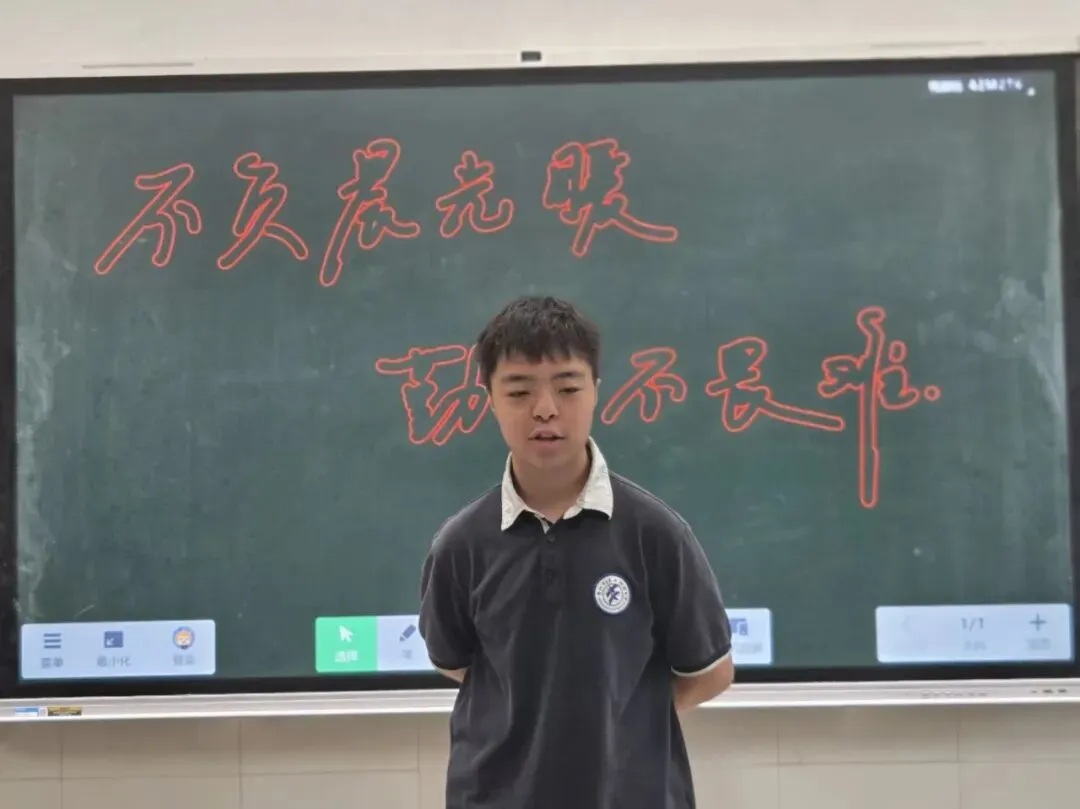 不负晨光暖
勤 不畏难.
菜单 最小化 选择 笔 1/1